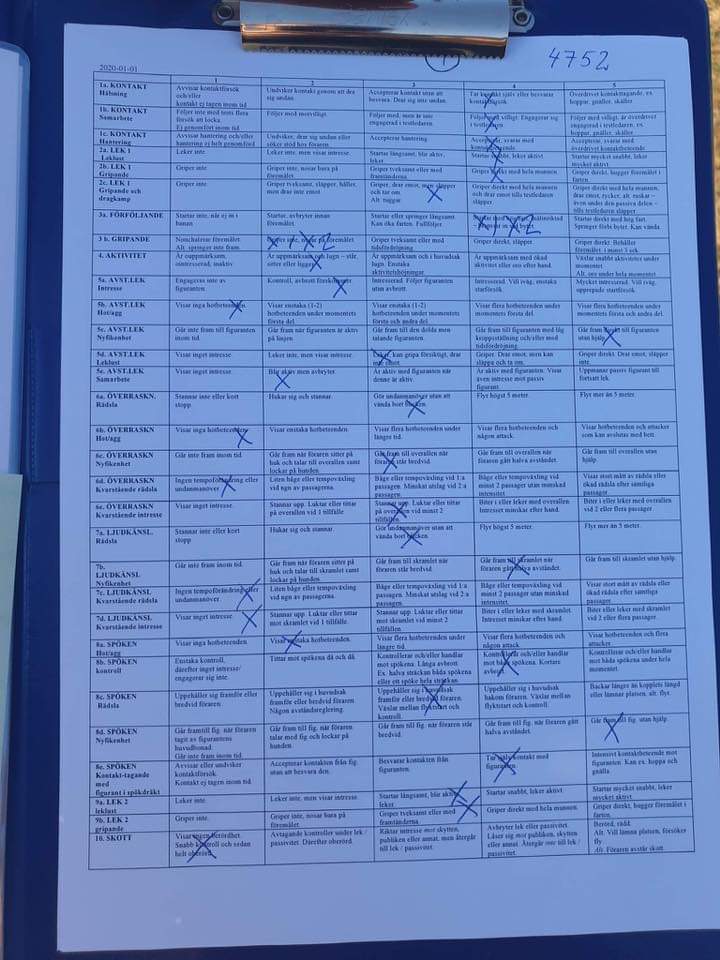 4752
2020-01-01
1 2 3 4 5
1a. KONTAKT
Hälsning
Avvisar kontaktförsök
och/eller
kontakt ej tagen inom tid
Undviker kontakt genom att dra
sig undan.
Accepterar kontakt utan att
besvara. Drar sig inte undan.
Tar kontakt själv eller besvarar
kontaktförsök.
Överdrivet kontakttagande, ex.
hoppar, gnäller, skäller
1b. KONTAKT
Samarbete
Följer inte med trots flera
försök att locka.
Ej genomfört inom tid
Följer med motvilligt.
Följer med, men är inte
engagerad i testledaren.
Följer med villigt. Engagerar sig
i testledaren
Följer med villigt, är överdrivet
engagerad i testledaren, ex.
hoppar, gnäller, skäller
1c. KONTAKT
Hantering
Avvisar hantering och/eller
hantering ej helt genomförd
Undviker, drar sig undan eller
söker stöd hos föraren.
Accepterar hantering.
Accepterar, svarar med
Accepterar, svarar med
överdrivet kontaktbeteende.
2a. LEK 1
Leklust
Leker inte
Leker inte, men visar intresse.
Startar långsamt, blir aktiv,
leker
Startar snabbt, leker aktivt
Startar mycket snabbt, leker
mycket aktivt
2b. LEK 1
Gripande
Griper inte
Griper inte, nosar bara på
föremålet
Griper tveksamt eller med
framtänderna
Griper direkt med hela munnen
Griper direkt, hugger föremålet i
farten.
2c. LEK 1
Gripande och
dragkamp
Griper inte
Griper tveksamt, släpper, håller,
men drar inte emot
Griper, drar emot, men släpper
och tar om.
Alt. tuggar.
Griper direkt med hela munnen
och drar emot till testledaren
släpper
Griper direkt med hela munnen,
drar emot, rycker, alt. ruskar –
även under den passiva delen –
tills testledaren släpper
3a. FÖRFÖLJANDE
Startar inte, när ej in i
banan
Startar, avbryter innan
föremålet
Startar eller springer långsamt
Kan öka farten. Fullföljer
Startar direkt med hög fart.
Springer förbi bytet. Kan vända.
X2
3 b. GRIPANDE
Nonchalerar föremålet.
Alt. springer inte fram.
Griper inte, nosar på föremålet
X 1 X 2
Griper tveksamt eller med
tidsfördröjning
Griper direkt, släpper.
Griper direkt. Behåller
föremålet, i minst 3 sek.
4. AKTIVITET
Är ouppmärksam,
ointresserad, inaktiv
Är uppmärksam och lugn – står,
sitter eller ligger
Är uppmärksam och i huvudsak
lugn. Enstaka
aktivitetshöjningar.
Är uppmärksam med ökad
aktivitet eller oro efter hand.
Växlar snabbt aktiviteter under
momentet
Alt. oro under hela momentet
5a. AVST.LEK
Intresse
Engageras inte av
figuranten
Kontroll, avbrott förekommer
Intresserad. Följer figuranten
utan avbrott.
Intresserad. Vill iväg, enstaka
startförsök.
Mycket intresserad. Vill iväg,
upprepade startförsök
5b. AVST.LEK
Hot/agg
Visar inga hotbeteenden.
Visar enstaka (1-2)
hotbeteenden under momentets
första del
Visar enstaka (1-2)
hotbeteenden under momentets
första och andra del
Visar flera hotbeteenden under
momentets första del
Visar flera hotbeteenden under
momentets första och andra del.
5c. AVST.LEK
Nyfikenhet
Går inte fram till figuranten
inom tid.
Går fram när figuranten är aktiv
på linjen.
Går fram till den dolda men
talande figuranten.
Går fram till figuranten med låg
kroppsställning och/eller med
tidsfördröjning
Går fram direkt till figuranten
utan hjälp
5d. AVST.LEK
Leklust
Visar inget intresse.
Leker inte, men visar intresse.
Leker, kan gripa försiktigt, drar
inte emot
Griper. Drar emot, men kan
släppa och ta om.
Griper direkt. Drar emot, släpper
inte.
5e. AVST.LEK
Samarbete
Visar inget intresse.
Blir aktiv men avbryter.
Är aktiv med figuranten när
denne är aktiv.
Är aktiv med figuranten. Visar
även intresse mot passiv
figurant.
Uppmanar passiv figurant till
fortsatt lek.
6a. ÖVERRASKN.
Rädsla
Stannar inte eller kort
stopp
Hukar sig och stannar.
Gör undanmanöver utan att
vända bort blicken.
Flyr högst 5 meter.
Flyr mer än 5 meter.
6b. ÖVERRASKN
Hot/agg
Visar inga hotbeteenden.
Visar enstaka hotbeteenden.
Visar flera hotbeteenden under
längre tid.
Visar flera hotbeteenden och
någon attack.
Visar hotbeteenden och attacker
som kan avslutas med bett.
6c. ÖVERRASKN
Nyfikenhet
Går inte fram inom tid.
Går fram när föraren sitter på
huk och talar till overallen samt
lockar på hunden
Går fram till overallen när
föraren står bredvid.
Går fram till overallen när
föraren gått halva avståndet.
Går fram till overallen utan
hjälp.
6d. ÖVERRASKN
Kvarstående rädsla
Ingen tempoförändring eller
undanmanöver
Liten båge eller tempoväxling
vid ngn av passagerna.
Båge eller tempoväxling vid 1:a
passagen. Minskat utslag vid 2:a
passagen.
Båge eller tempoväxling vid
minst 2 passager utan minskad
intensitet.
Visar stort mått av rädsla eller
ökad rädsla efter samtliga
passager
6e. ÖVERRASKN
Kvarstående intresse
Visar inget intresse.
Stannar upp. Luktar eller tittar
på overallen vid 1 tillfälle
Stannar upp. Luktar eller tittar
på overallen vid minst 2
tillfällen.
Biter i eller leker med overallen
Intresset minskar efter hand.
Biter i eller leker med overallen
vid 2 eller flera passager.
7a. LJUDKÄNSL.
Rädsla
Stannar inte eller kort
stopp
Hukar sig och stannar.
Gör undanmanöver utan att
vända bort blicken.
Flyr högst 5 meter.
Flyr mer än 5 meter.
7b.
LJUDKÄNSL
Nyfikenhet
Går inte fram inom tid.
Går fram när föraren sitter på
huk och talar till skramlet samt
lockar på hunden
Går fram till skramlet när
föraren står bredvid.
Går fram till skramlet när
föraren gått halva avståndet.
Går fram till skramlet utan hjälp.
7c. LJUDKÄNSL
Kvarstående rädsla
Ingen tempoförändring eller
undanmanöver.
Liten båge eller tempoväxling
vid ngn av passagerna.
Båge eller tempoväxling vid 1:a
passagen. Minskat utslag vid 2:a
passagen.
Båge eller tempoväxling vid
minst 2 passager utan minskad
intensitet.
Visar stort mått av rädsla eller
ökad rädsla efter samtliga
passager.
7d. LJUDKÄNSL
Kvarstående intresse
Visar inget intresse.
Stannar upp. Luktar eller tittar
mot skramlet vid 1 tillfälle
Stannar upp. Luktar eller tittar
mot skramlet vid minst 2
tillfällen
Biter i eller leker med skramlet
Intresset minskar efter hand.
Biter eller leker med skramlet
vid 2 eller flera passager.
8a. SPÖKEN
Hot/agg
Visar inga hotbeteenden
Visar enstaka hotbeteenden.
Visar flera hotbeteenden under
längre tid.
Visar flera hotbeteenden och
någon attack.
Visar hotbeteenden och flera
attacker.
8b. SPÖKEN
kontroll
Enstaka kontroll,
därefter inget intresse/
engagerar sig inte.
Tittar mot spökena då och då.
Kontrollerar och/eller handlar
mot spökena. Långa avbrott
Ex. halva sträckan båda spökena
eller ett spöke hela sträckan
Kontrollerar och/eller handlar
mot båda spökena. Kortare
avbrott
Kontrollerar och/eller handlar
mot båda spökena under hela
momentet.
8c. SPÖKEN
Rädsla
Uppehåller sig framför eller
bredvid föraren.
Uppehåller sig i huvudsak
framför eller bredvid föraren
Någon avståndsreglering.
Uppehåller sig i huvudsak
framför eller bredvid föraren.
Växlar mellan flyktstart och
kontroll.
Uppehåller sig i huvudsak
bakom föraren. Växlar mellan
flyktstart och kontroll.
Backar längre än kopplets längd
eller lämnar platsen, alt. flyr.
8d. SPÖKEN
Nyfikenhet
Går framtill fig. när föraren
tagit av figurantens
huvudbonad.
Går inte fram inom tid.
Går fram till fig. när föraren
talar med fig och lockar på
hunden
Går fram till fig. när föraren står
bredvid.
Går fram till fig. när föraren gått
halva avståndet.
Går fram till fig. utan hjälp.
8e. SPÖKEN
Kontakt-tagande
med
figurant i spökdräkt
Avvisar eller undviker
kontaktförsök.
Kontakt ej tagen inom tid.
Accepterar kontakten från fig.
utan att besvara den.
Besvarar kontakten från
figuranten.
Tar själv kontakt med
figuranten.
Intensivt kontaktbeteende mot
figuranten. Kan ex. hoppa och
gnälla.
9a. LEK 2
leklust
Leker inte.
Leker inte, men visar intresse.
Startar långsamt, blir aktiv,
leker.
Startar snabbt, leker aktivt.
Startar mycket snabbt, leker
mycket aktivt
9b. LEK 2
gripande
Griper inte.
Griper inte, nosar bara på
föremålet.
Griper tveksamt eller med
framtänderna.
Griper direkt med hela munnen.
Griper direkt, hugger föremålet i
farten.
10. SKOTT
Visar ingen berördhet.
Snabb kontroll och sedan
helt oberörd.
Avtagande kontroller under lek /
passivitet. Därefter oberörd.
Riktar intresse mot skytten,
publiken eller annat, men återgår
till lek / passivitet.
Avbryter lek eller passivitet.
Låser sig mot publiken, skytten
eller annat. Återgår inte till lek /
passivitet.
Berörd, rädd.
Alt. Vill lämna platsen, försöker
fly
Alt. Föraren avstår skott.